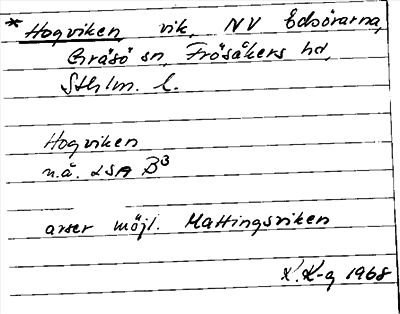 * Hogviken, vik, NV Edsörarna,
Gräsö sn, Frösåkers hd,
Sthlm. l.
Hogviken
n.ä. LSA B3
avser möjl. Mattingsviken
K-g 1968